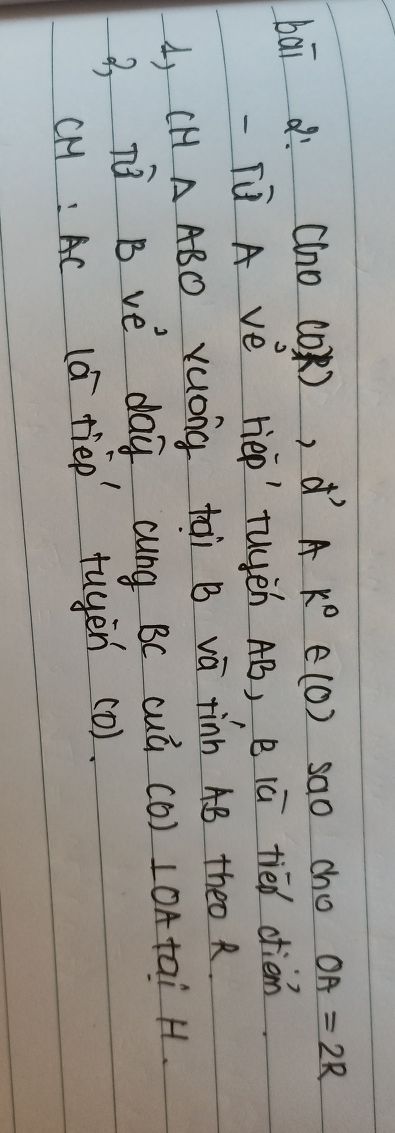 bài 2: Cho (O;R), đ' A k° ∈ (O) sao cho OA = 2R
- Từ A vẽ tiếp tuyến AB, B là tiếp điểm.
1, CM Δ ABO vuông tại B và tính AB theo R.
2, Từ B vẽ dây cung BC của (O) ⊥ OA tại H.
CM : AC là tiếp tuyến (O).